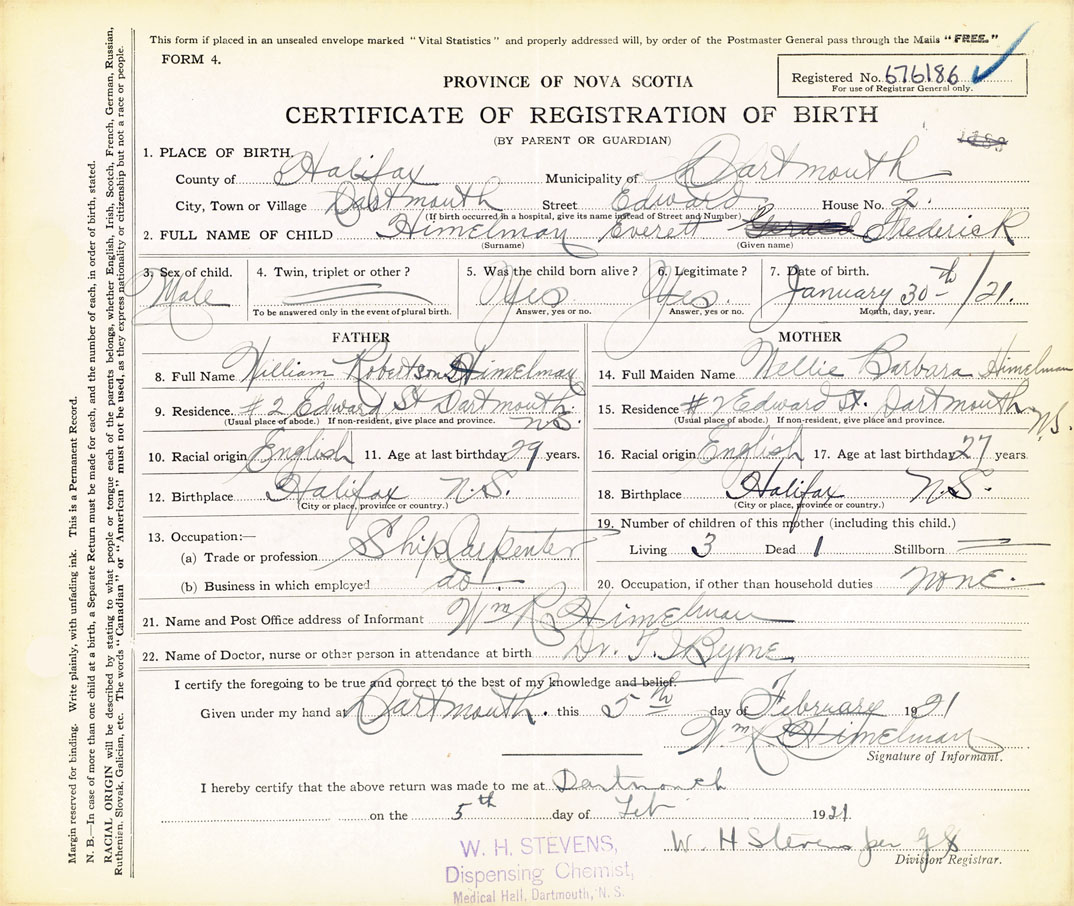 This form if placed in an unsealed envelope marked "Vital Statistics" and properly addressed will, by order of the Postmaster General pass through the Mails "FREE."
FORM 4.
Registered No. 676186
For use of Registrar General only.
PROVINCE OF NOVA SCOTIA
CERTIFICATE OF REGISTRATION OF BIRTH
(BY PARENT OR GUARDIAN)
1. PLACE OF BIRTH.
County of Halifax Municipality of Dartmouth
City, Town or Village Dartmouth Street Edward House No. 2.
(If birth occurred in a hospital, give its name instead of Street and Number)
2. FULL NAME OF CHILD Himelman Everett Gerald Frederick
(Surname) (Given name)
3. Sex of child. 4. Twin, triplet or other? 5. Was the child born alive? 6. Legitimate? 7. Date of birth.
Male Yes Yes. January 30th/21.
To be answered only in the event of plural birth. Answer, yes or no. Answer, yes or no. Month, day, year.
FATHER MOTHER
8. Full Name William Robertson Himelman 14. Full Maiden Name Nellie Barbara Himelman
9. Residence # 2 Edward St Dartmouth N.S. 15. Residence # 2 Edward St. Dartmouth N.S.
(Usual place of abode.) If non-resident, give place and province. (Usual place of abode.) If non-resident, give place and province.
10. Racial origin English 11. Age at last birthday 29 years. 16. Racial origin English 17. Age at last birthday 27 years
12. Birthplace Halifax N.S. 18. Birthplace Halifax N.S.
(City or place, province or country.) (City or place, province or country.)
13. Occupation:— 19. Number of children of this mother (including this child.)
(a) Trade or profession Ship Carpenter Living 3 Dead 1 Stillborn
(b) Business in which employed do 20. Occupation, if other than household duties None.
21. Name and Post Office address of Informant Wm R Himelman
22. Name of Doctor, nurse or other person in attendance at birth Dr. Byrne
I certify the foregoing to be true and correct to the best of my knowledge and belief.
Given under my hand at Dartmouth. this 5th day of February 1921
Wm R Himelman
Signature of Informant.
I hereby certify that the above return was made to me at Dartmouth
on the 5th day of Feb 1921
W. H Stevens per
Division Registrar.
W. H. STEVENS,
Dispensing Chemist,
Medical Hall, Dartmouth, N. S.
Margin reserved for binding. Write plainly, with unfading ink. This is a Permanent Record.
N. B.—In case of more than one child at a birth, a Separate Return must be made for each, and the number of each, in order of birth, stated.
RACIAL ORIGIN will be described by stating to what people or tongue each of the parents belongs, whether English, Irish, Scotch, French, German, Russian,
Ruthenian, Slovak, Galician, etc. The words "Canadian" or "American" must not be used, as they express nationality or citizenship but not a race or people.